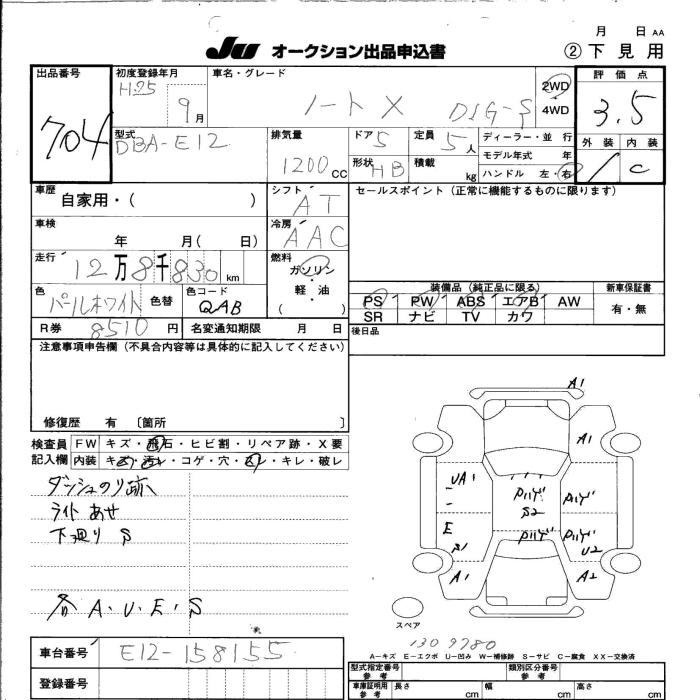 月 日 AA
JU オークション出品申込書 ②下見用
出品番号 704
初度登録年月 H25 9月
車名・グレード ノート X DIG-S
2WD
4WD
評価点 3.5
型式 DBA-E12
排気量 1200cc
ドア 5
定員 5人
形状 HB
積載 kg
ディーラー・並 行
モデル年式 年
ハンドル 左・右
外装 内装
C
車歴 自家用・( )
シフト AT
セールスポイント(正常に機能するものに限ります)
車検 年 月( 日)
冷房 AAC
走行 12万8千830km
燃料 ガソリン・軽油
( )
色 パールホワイト 色替
色コード QAB
装備品(純正品に限る)
新車保証書
PS PW ABS エアB AW 有・無
SR ナビ TV カワ
R券 8510円 名変通知期限 月 日
後日品
注意事項申告欄(不具合内容等は具体的に記入してください)
修復歴 有 〔箇所 〕
検査員 FW キズ・飛石・ヒビ割・リペア跡・X要
記入欄 内装 キズ・汚レ・コゲ・穴・スレ・キレ・破レ
ダッシュのり跡
ライトあせ
下廻り S
各 A.U.E.S
A1
A1
UA1
E
S1
A1
S2
U2
A2
スペア
1309780
A-キズ E-エクボ U-凹み W-補修跡 S-サビ C-腐食 XX-交換済
車台番号 E12-158155
登録番号
型式指定番号 参考
類別区分番号 参考
車庫証明用 参考 長さ cm 幅 cm 高さ cm